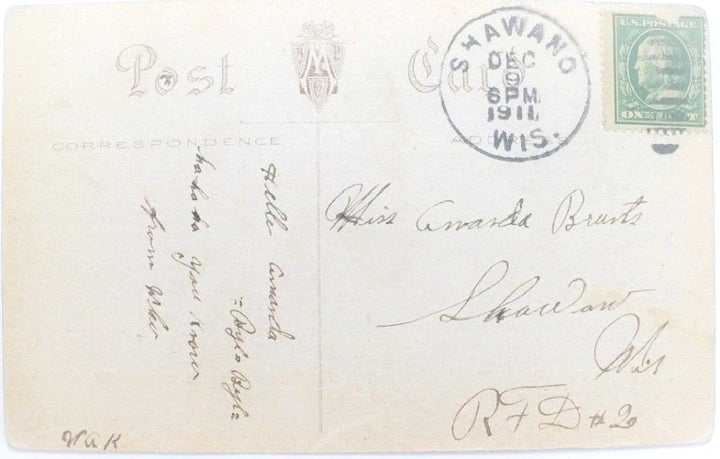 Post Card
CORRESPONDENCE
ADDRESS
SHAWANO
DEC
9
6PM
1911
WIS.
U.S. POSTAGE
ONE CENT
Hello Amanda
= Bylo Byl =
ha ha ha you know
from who
W A K
Miss Amanda Brunts
Shawano
Wis
RFD #2